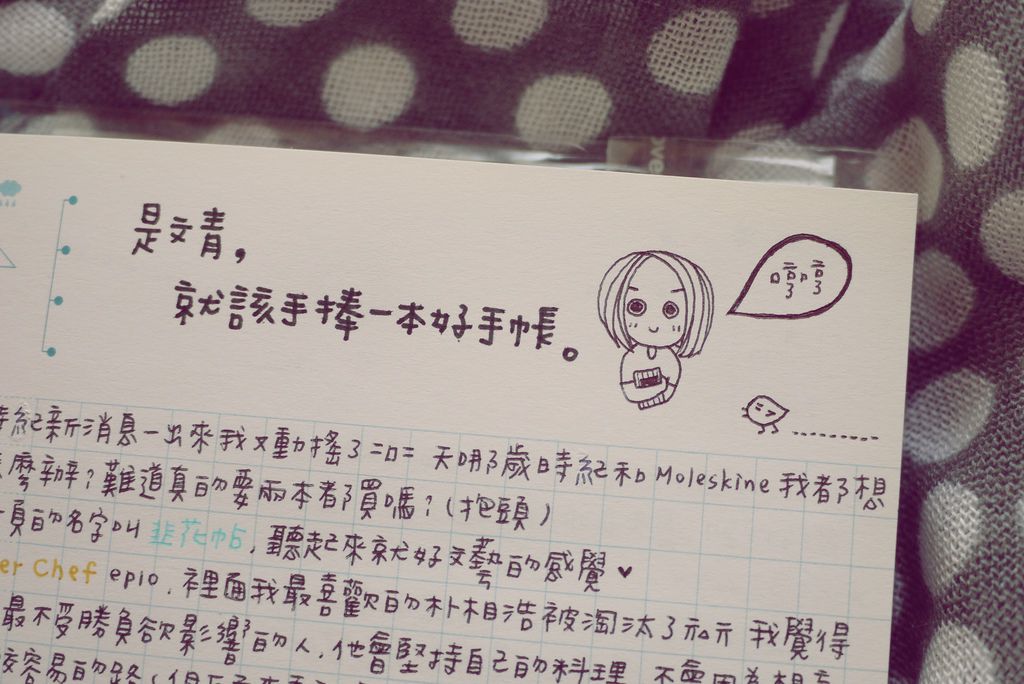 是文青,
就該手捧一本好手帳。
嗝嗝
時紀新消息一出來我又動搖了=口= 天哪歲時紀和Moleskine我都想
麼辦?難道真的要兩本都買嗎?(抱頭)
頁的名字叫 韭花帖, 聽起來就好文藝的感覺♥
er Chef epio. 裡面我最喜歡的朴相浩被淘汰了 我覺得
最不受勝負欲影響的人, 他會堅持自己的料理, 不會因為想
容易的路